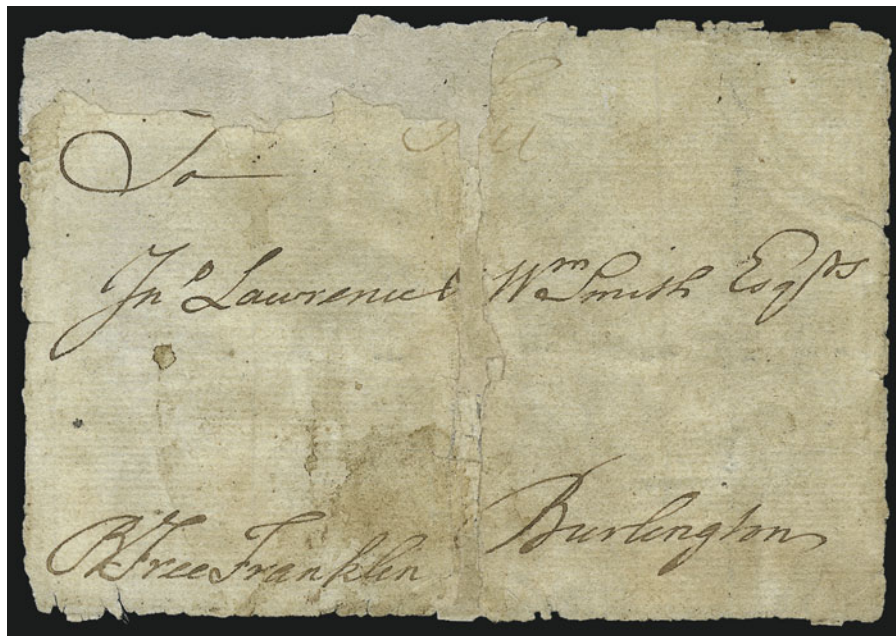 To
Jno Lawrence Wm Smith Esqrs
B Free Franklin Burlington